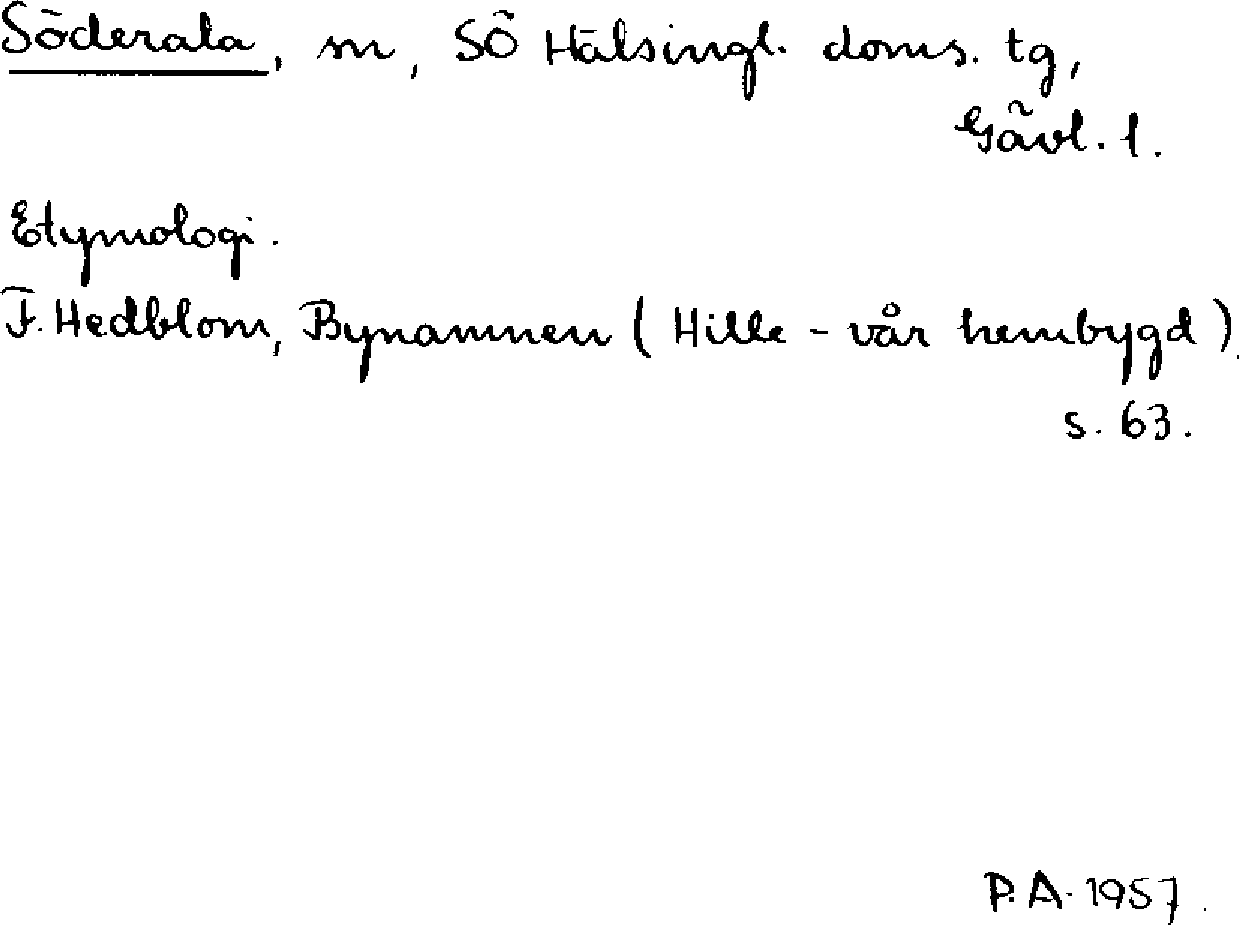 Söderala, sn, SÖ Hälsingl. doms. tg,
Gävl. l.
Etymologi.
F. Hedblom, Bynamnen (Hille - vår hembygd).
s. 63.
P.A. 1957.